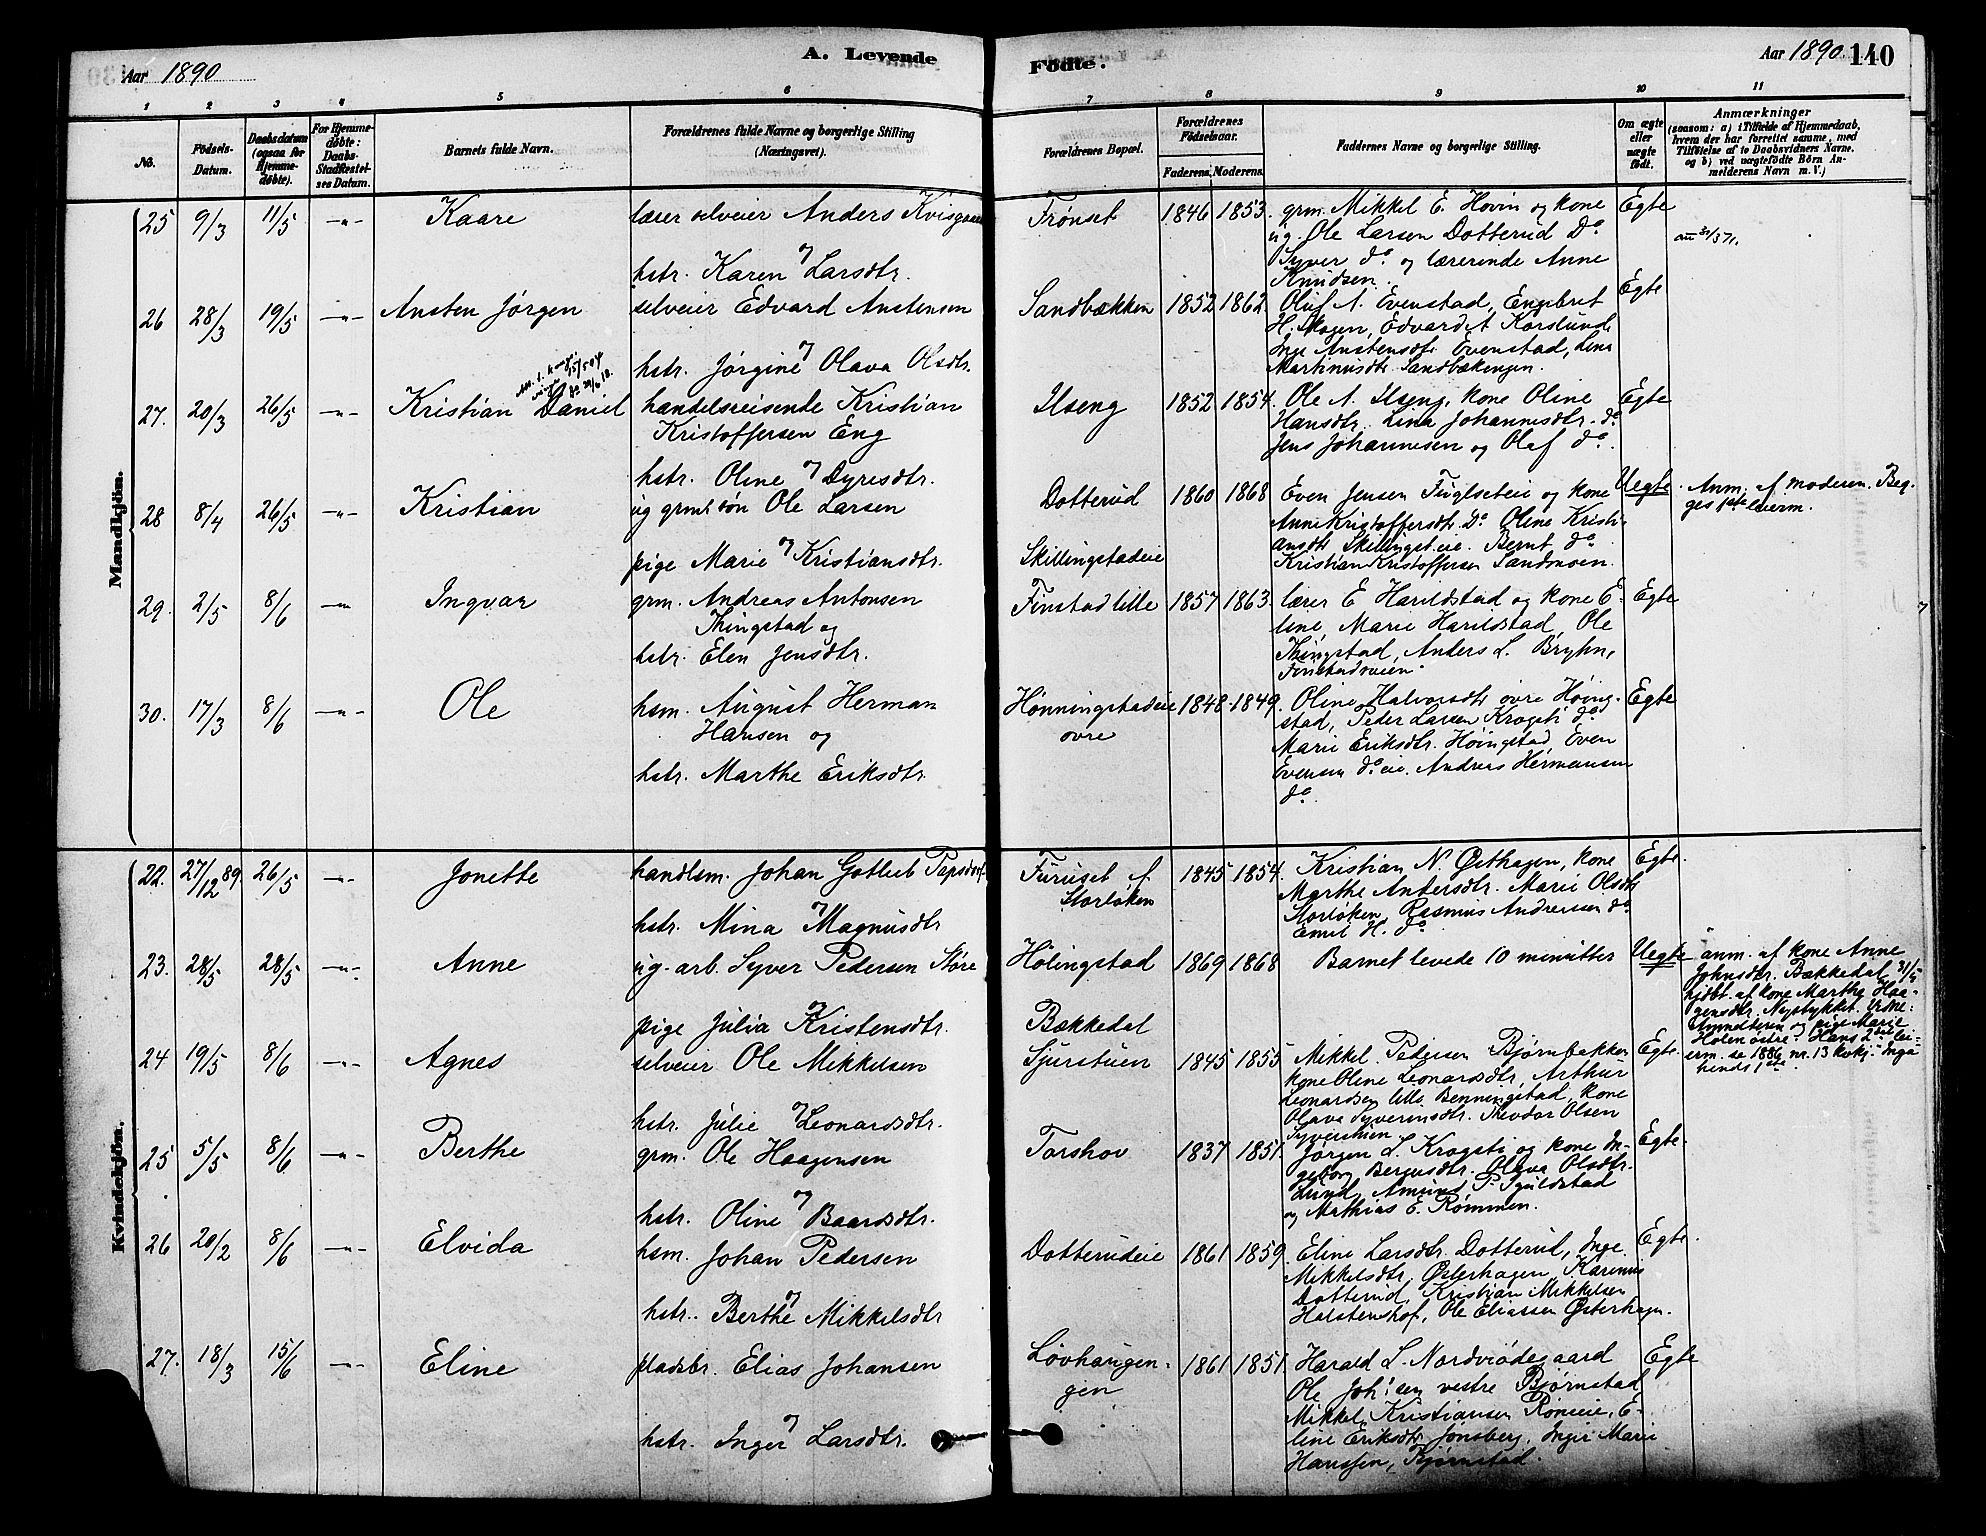 Aar 1890
A. Levende
Fødte.
Aar 1890
140
1 2 3 4 5 6 7 8 9 10 11
No.
Fødsels-Datum.
Daabsdatum (ogsaa for Hjemme-døbte).
For Hjemme-døbte: Daabs-Stadfæstel-ses Datum.
Barnets fulde Navn.
Forældrenes fulde Navne og borgerlige Stilling (Næringsvei).
Forældrenes Bopæl.
Forældrenes Fødselsaar.
Faderens. Moderens.
Faddernes Navne og borgerlige Stilling.
Om ægte eller uægte født.
Anmærkninger
(saasom: a) i Tilfælde af Hjemmedaab, hvem der har forrettet samme, med Tilføielse af to Daabsvidners Navne, og b) ved uægtefødte Børn An-melderens Navn m. V.)
Mandkjön.
25 9/3 11/5 -"- Kaare
lærer selveier Anders Kvisgaard
og
hstr. Karen Larsdtr.
Frønset 1846 1853.
grm. Mikkel E. Hovin og kone
ug. Ole Larsen Dotterud Do
Syver do. og lærerinde Anne
Knudsen.
Egte
26 28/3 19/5 -"- Ansten Jørgen
selveier Edvard Anstensen
og
hstr. Jørgine Olava Olsdtr.
Sandbækken 1852 1862.
Oluf A. Evenstad, Engebret
H. Skogen, Edvard A Korslund
Inge Anstensdtr Evenstad, Lina
Martinusdtr Sandbækengen.
Egte
27. 20/3 26/5 -"- Kristian Daniel
handelsreisende Kristian
Kristoffersen Eng
og
hstr. Oline Dyresdtr.
Ilseng 1852 1854.
Ole A. Ilseng, kone Oline
Hansdtr. Lina Johannesdtr. do
Jens Johannesen og Olaf do.
Egte
28 8/4 26/5 -"- Kristian
ug grmt søn Ole Larsen
og
pige Marie Kristiansdtr.
Dotterud 1860 1868
Skillingstadeie
Even Jensen Fuglseteie og kone
Anne Kristoffersdtr. Do Oline Kristi-
ansdtr Skillingst.eie. Bernt do
Kristian Kristoffersen Sandmoen.
Uegte
Anm. af moderen. Beg-
ges 1ste leierm.
29. 2/5 8/6 -"- Ingvar
grm. Andreas Antonsen
Thingstad og
hstr. Elen Jensdtr.
Finstad lille 1857 1863.
lærer E Harildstad og kone E-
line Marie Harildstad, Ole
Thingstad, Anders L. Bryhn,
Finstadsveien.
Egte
30. 17/3 8/6 -"- Ole
hsm. August Herman
Hansen og
hstr. Marthe Eriksdtr.
Hønningstadeie
øvre
1848 1849.
Oline Halvorsdtr øvre Høing-
stad, Peder Larsen Krogsti do
Marie Eriksdtr. Høingstad, Even
Evensen do eie. Andreas Hermansen
do.
Egte
Kvindekjön.
22. 27/12 89. 26/5 -"- Jonette
handlsm. Johan Gotlieb Papsdorf
og
hstr. Mina Magnusdtr
Furuset f.
Storløken
1845 1854.
Kristian N. Østhagen, kone
Marthe Andersdtr. Marie Olsdtr
Storløken, Rasmus Andreasen do
Emil H. do
Egte.
23. 28/5 28/5 -"- Anne
ug. arb. Syver Pedersen Störe
og
pige Julia Kristensdtr.
Hölingstad 1869 1868
Bækkedal
Barnet levede 10 minutter
Uegte
anm. af kone Anne
Johnsdtr. Bækkedal 31/5
hjdbt. af kone Marthe Haa-
gensdtr. Nystykket. Vidne:
Ammtteren og pige Marie
Holen østre. Hans 2den lei-
erm. se 1886 nr. 13 kvkj. Inga
hends 1ste.
24 19/5 8/6 -"- Agnes
selveier Ole Mikkelsen
og
hstr. Julie Leonardsdtr.
Sjurstuen 1845 1855
Mikkel Pedersen Bjørnbakken
kone Oline Leonardsdtr, Arthur
Leonardsen lille Benningstad, kone
Olava Syverinsdtr. Theodor Olsen
Syverstuen.
Egte.
25 5/5 8/6 -"- Berthe
grm. Ole Haagensen
og
hstr. Oline Baardsdtr.
Torshov 1837 1851.
Jørgen L. Krogsti og kone In-
geborg Bergersdtr. Olava Olsdtr.
Lund, Amund P. Sguldstad
og Mathias E. Rømmen.
Egte.
26 20/2 8/6 -"- Elvida
hsm. Johan Pedersen
og
hstr. Berthe Mikkelsdtr
Dotterudeie 1861 1859
Eline Larsdtr. Dotterud, Inge
Mikkelsdtr, Østerhagen, Karinus
Dotterud, Kristian Mikkelsen
Halstenshof, Ole Eliassen Østerhagn.
Egte.
27. 18/3 15/6 -"- Eline
pladsbr. Elias Johansen
og
hstr. Inger Larsdtr.
Løvhaugen-
gen
1861 1851.
Harald L. Nordviødegaard
Ole Joh:sen vestre Bjørnstad
Mikkel Kristiansen Røneeie, E-
line Eriksdtr Jønsberg, Inger Marie
Hanssen, Bjørnstad.
Egte